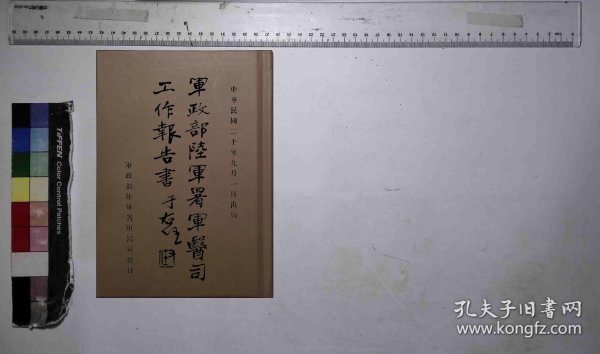 中華民國二十年九月一日出版
軍政部陸軍署軍醫司
工作報告書 于右任
軍政部陸軍署軍醫司發行
TIFFEN Color Control Patches
孔夫子旧书网
www.kongfz.com